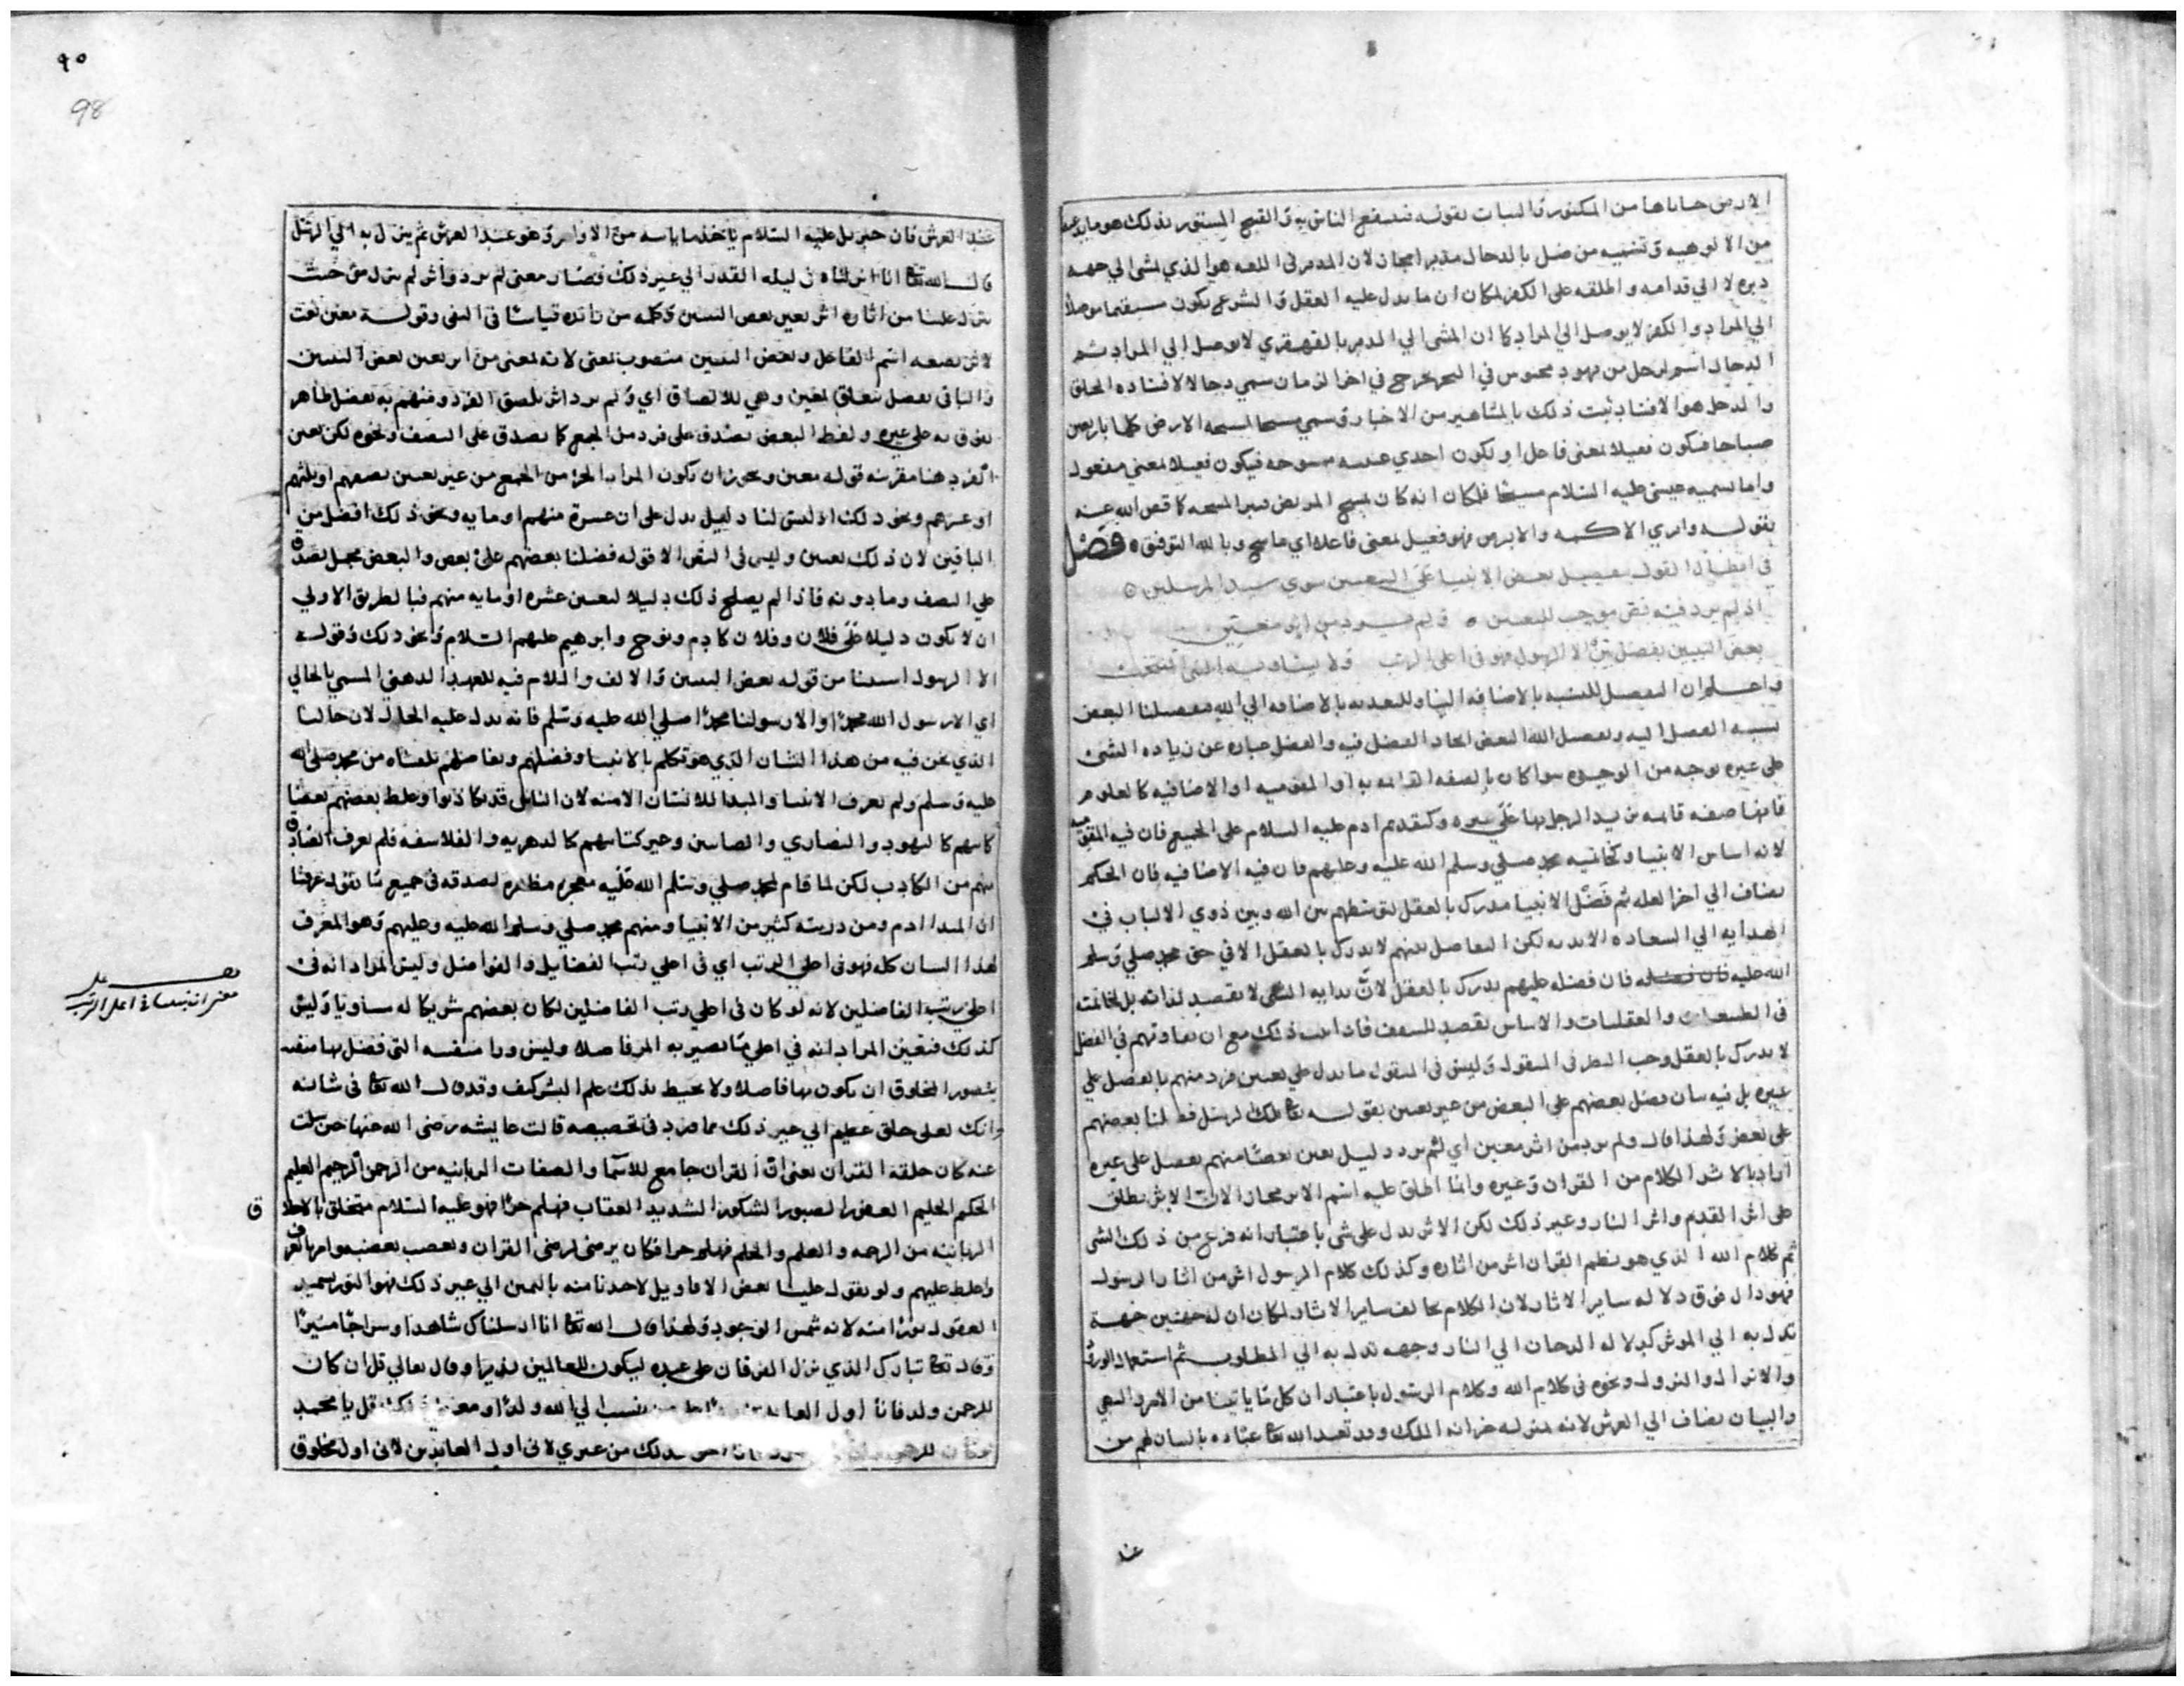 الارض من المكنوز والنبات بقوله الناس به والقبيح المستور بذلك هو ما
من الالوهيه وتسميه من ضل بالدجال مدبرا مجاز لان المدبر في اللغه هو الذي مشى الي جهه
دبره لا الي قدامه واطلقه على الكفر لمكان ان ما يدل عليه العقل والشرع يكون مستقيما موصلا
الي المراد والكفر لا يوصل الي المراد كما ان المشي الي الدبر بالقهقري لا يوصل الي المراد ثم
الدجال اسم لرجل من يهود محبوس في البحر يخرج في اخر الزمان سمي دجالا لافساده الخلق
والدجل هو الافساد ثبت ذلك بالمشاهير من الاخبار وسمي مسيحا لمسحه الارض كلها باربعين
صباحا فيكون فعيلا بمعنى فاعل او يكون احدي عينيه ممسوحه فيكون فعيلا بمعنى مفعول
واما تسميه عيسى عليه السلام مسيحا فلمكان انه كان يمسح المريض فيبرا لمسحه كما قص الله عنه
بقوله وابري الاكمه والابرص فهو فعيل بمعنى فاعل اي ماسح وبالله التوفيق ه فصل
في ابطال القول بتفضيل بعض الانبيا على التعيين سوي سيد المرسلين ه
اذ لم يرد فيه نص موجب للتعيين ه ولم يرد من اثر معين
بعض النبيين بفضل الا الرسول فهو في اعلى الرتب ولا
واعلم ان التفضيل للنسبه بالاضافه الينا وللتعديه بالاضافه الي الله فتفضيلنا البعض
نسبه الفضل اليه وتفضيل الله البعض ايجاد الفضل فيه والفضل عباره عن زياده الشي
على غيره بوجه من الوجوه سوا كان بالصفه القائمه به او المقوميه او الاضافيه كالعلوم
فانها صفه قائمه يزيد الرجل بها على غيره وكتقدم ادم عليه السلام على الجميع فان فيه المقوميه
لانه اساس الانبيا وكخاتميه محمد صلي وسلم الله عليه وعليهم فان فيه الاضافيه فان الحكم
يضاف الي اخر العله ثم فضل الانبيا مدرك بالعقل لتوسطهم بين الله وبين ذوي الالباب في
الهدايه الي السعاده الابديه لكن التفاضل بينهم لا يدرك بالعقل الا في حق محمد صلي وسلم
الله عليه فان فضله فان فضله عليهم يدرك بالعقل لان بدايه الشي لا يقصد لذاته بل لخاتمته
في الطبيعيات والعقليات والاساس يقصد للسقف فاذا ثبت ذلك مع ان تفاوتهم في الفضل
لا يدرك بالعقل وجب النظر في المنقول وليس في المنقول ما يدل على تعيين فرد منهم بالفضل على
غيره بل فيه بيان فضل بعضهم على البعض من غير تعيين بقوله تعا تلك الرسل فضلنا بعضهم
على بعض ولهذا قال ولم يرد من اثر معين اي لم يرد دليل يعين بعضا منهم بفضل على غيره
اراد بالاثر الكلام من القران وغيره وانما اطلق عليه اسم الاثر مجازا لان الاثر يطلق
على اثر القدم واثر النار وغير ذلك لكن الاثر يدل على شي باعتبار انه فرع من ذلك الشي
ثم كلام الله الذي هو نظم القران اثر من اثاره وكذلك كلام الرسول اثر من اثار الرسول
فهو دال فوق دلاله ساير الاثار لان الكلام يخالف ساير الاثار لمكان ان له جهتين جهه
يدل به الي الموثر كدلاله الدخان الي النار وجهه تدل به الي المطلوب ثم استعمال الورود
والانزال والنزول ونحوه في كلام الله وكلام الرسول باعتبار ان كل ما ياتينا من الامر والنهي
والبيان يضاف الي العرش لانه بمنزله خزانه الملك وقد تعبد الله تعا عباده بايمانهم من
عند
٩٥
98
عند العرش فان جبريل عليه السلام ياخذ ما ياتيه من الاوامر وهو عند العرش ثم ينزل به الي الرسل
قال الله تعا انا انزلناه في ليله القدر الي غير ذلك فصار معنى لم يرد واثر لم ينزل من حيث
ينزل علينا من اثاره اثر يعين بعض النبيين وكلمه من زائده قياسا في النفي وقوله معين نعت
لاثر بصيغه اسم الفاعل وبعض النبيين منصوب بمعنى لانه بمعنى من اثر يعين بعض النبيين
والبا في بفضل متعلق بمعين وهي للالصاق اي ولم يرد اثر يلصق الفرد منهم به بفضل ظاهر
يفوق به على غيره ولفظ البعض يصدق على فرد من الجمع كما يصدق على النصف ونحوه لكن تعين
الفرد هنا بقرينه قوله معين ويجوز ان يكون المراد الجزء من الجميع من غير تعيين نصفهم او ثلثهم
او عشرهم ونحو ذلك اذ ليس لنا دليل يدل على ان عشرة منهم او مايه ونحو ذلك افضل من
الباقين لان ذلك تعيين وليس في النص الا قوله فضلنا بعضهم على بعض والبعض مجمل يصدق
على النصف وما دونه فاذا لم يصلح ذلك دليلا لتعيين عشره او مايه منهم فبالطريق الاولي
ان لا يكون دليلا على فلان وفلان كادم ونوح وابرهيم عليهم السلام ونحو ذلك وقوله
الا الرسول استثنا من قوله بعض النبيين والالف واللام فيه للعهد الذهني المسمي بالحالي
اي الا رسول الله محمدا او الا رسولنا محمدا صلي الله عليه وسلم فانه يدل عليه الحال لان حالنا
الذي نحن فيه من هذا الشان الذي هو تكلم بالانبيا وفضلهم وتفاضلهم تلقيناه من محمد صلي الله
عليه وسلم ولم نعرف الانبيا والمبدا للانسان الا منه لان الناس قد تكاذبوا وغلط بعضهم بعضا
كتابيهم كاليهود والنصاري والصابين وغير كتابيهم كالدهريه والفلاسفه فلم نعرف الصادق
منهم من الكاذب لكن لما قام لمحمد صلي وسلم الله عليه معجزه مظهره لصدقه في جميع ما يقول عرفنا
ان المبدا ادم ومن ذريته كثير من الانبيا ومنهم محمد صلي وسلم الله عليه وعليهم وهو المعرف
لهذا الشان كله فهو في اعلي الرتب اي في اعلي رتب الفضايل والفواضل وليس المراد انه في
اعلي رتب الفاضلين لانه لو كان في اعلي رتب الفاضلين لكان بعضهم شريكا له مساويا وليس
كذلك فتعين المراد انه في اعلي ما يصير به المرء فاضلا وليس ورا منقبته التي فضل بها منقبه
يتصور المخلوق ان يكون بها فاضلا ولا يحيط بذلك علم البشر كيف وقد قال الله تعا في شانه
وانك لعلى خلق عظيم الي غير ذلك مما ورد في تخصيصه قالت عايشه رضي الله عنها حين سئلت
عنه كان خلقه القران يعني ان القران جامع للاسما والصفات الربانيه من الرحمن الرحيم العليم
الحكيم الحليم الغفور الصبور الشكور الشديد العقاب فهلم جرا فهو عليه السلام متخلق بالاخلاق
الربانيه من الرحمه والعلم والحلم فهلم جرا فكان يرضى لرضى القران ويغضب بغضبه
واغلظ عليهم ولو تقول علينا بعض الاقاويل لاخذنا منه باليمين الي غير ذلك فهو النور يستمد
العقول نورا منه لانه شمس الوجود ولهذا قال الله تعا انا ارسلناك شاهدا وسراجا منيرا
وقال تعا تبارك الذي نزل الفرقان على عبده ليكون للعالمين نذيرا وقال تعالي قل ان كان
للرحمن ولد فانا اول العابدين نسب الي الله ولدا ومعنى ذلك قل يا محمد
للرحمن بذلك من غيري لاني اول العابدين لاني اول مخلوق